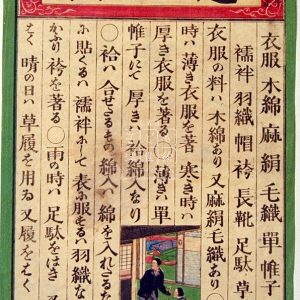 衣服 木綿 麻 絹 毛織 單 帷子
襦袢 羽織 帽 袴 長靴 足駄 草
衣服の料ハ木綿あり又麻絹毛織あり〇
時ハ薄き衣服を著 寒き時ハ
厚き衣服を著る 薄きハ單
帷子にて厚きハ袷綿入なり
〇袷ハ合せさるもの綿入ハ綿を入れさるな
に貼くるハ襦袢にして表に服するハ羽織な
かふり袴を著る〇雨の時ハ足駄をはき又
はく 晴の日ハ草履を用ゐ又履をはく